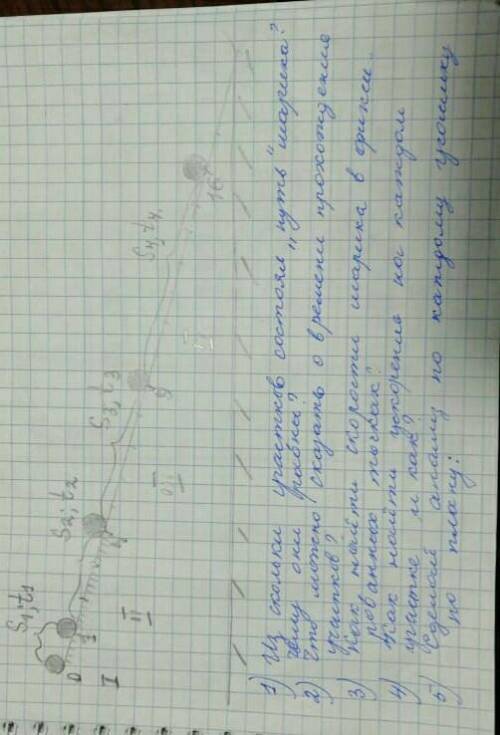 S₁; t₁
S₂; t₂
S₃, t₃
S₄, t₄
0
1
4
9
16
I
II
III
IV
1) Из скольки участков состоял "путь" шарика?
Чему они равны?
2) Что можно сказать о времени прохождения
участков?
3) Как найти скорости шарика в фикси
рованных точках?
4) Как найти ускорение на каждом
участке и как?
5) Сделай анализ по каждому участку
по плану: